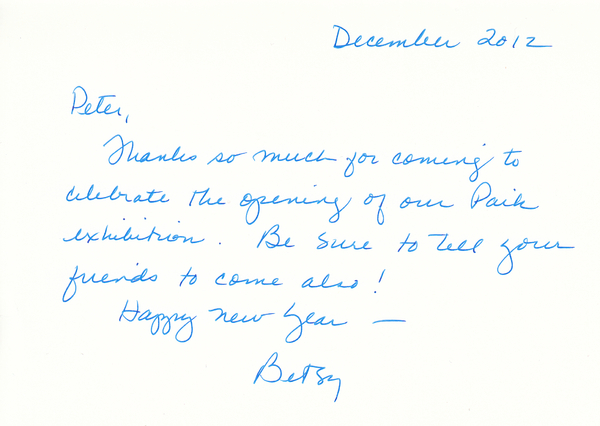 December 2012
Peter,
Thanks so much for coming to
celebrate the opening of our Paik
exhibition. Be sure to tell your
friends to come also!
Happy New Year —
Betsy